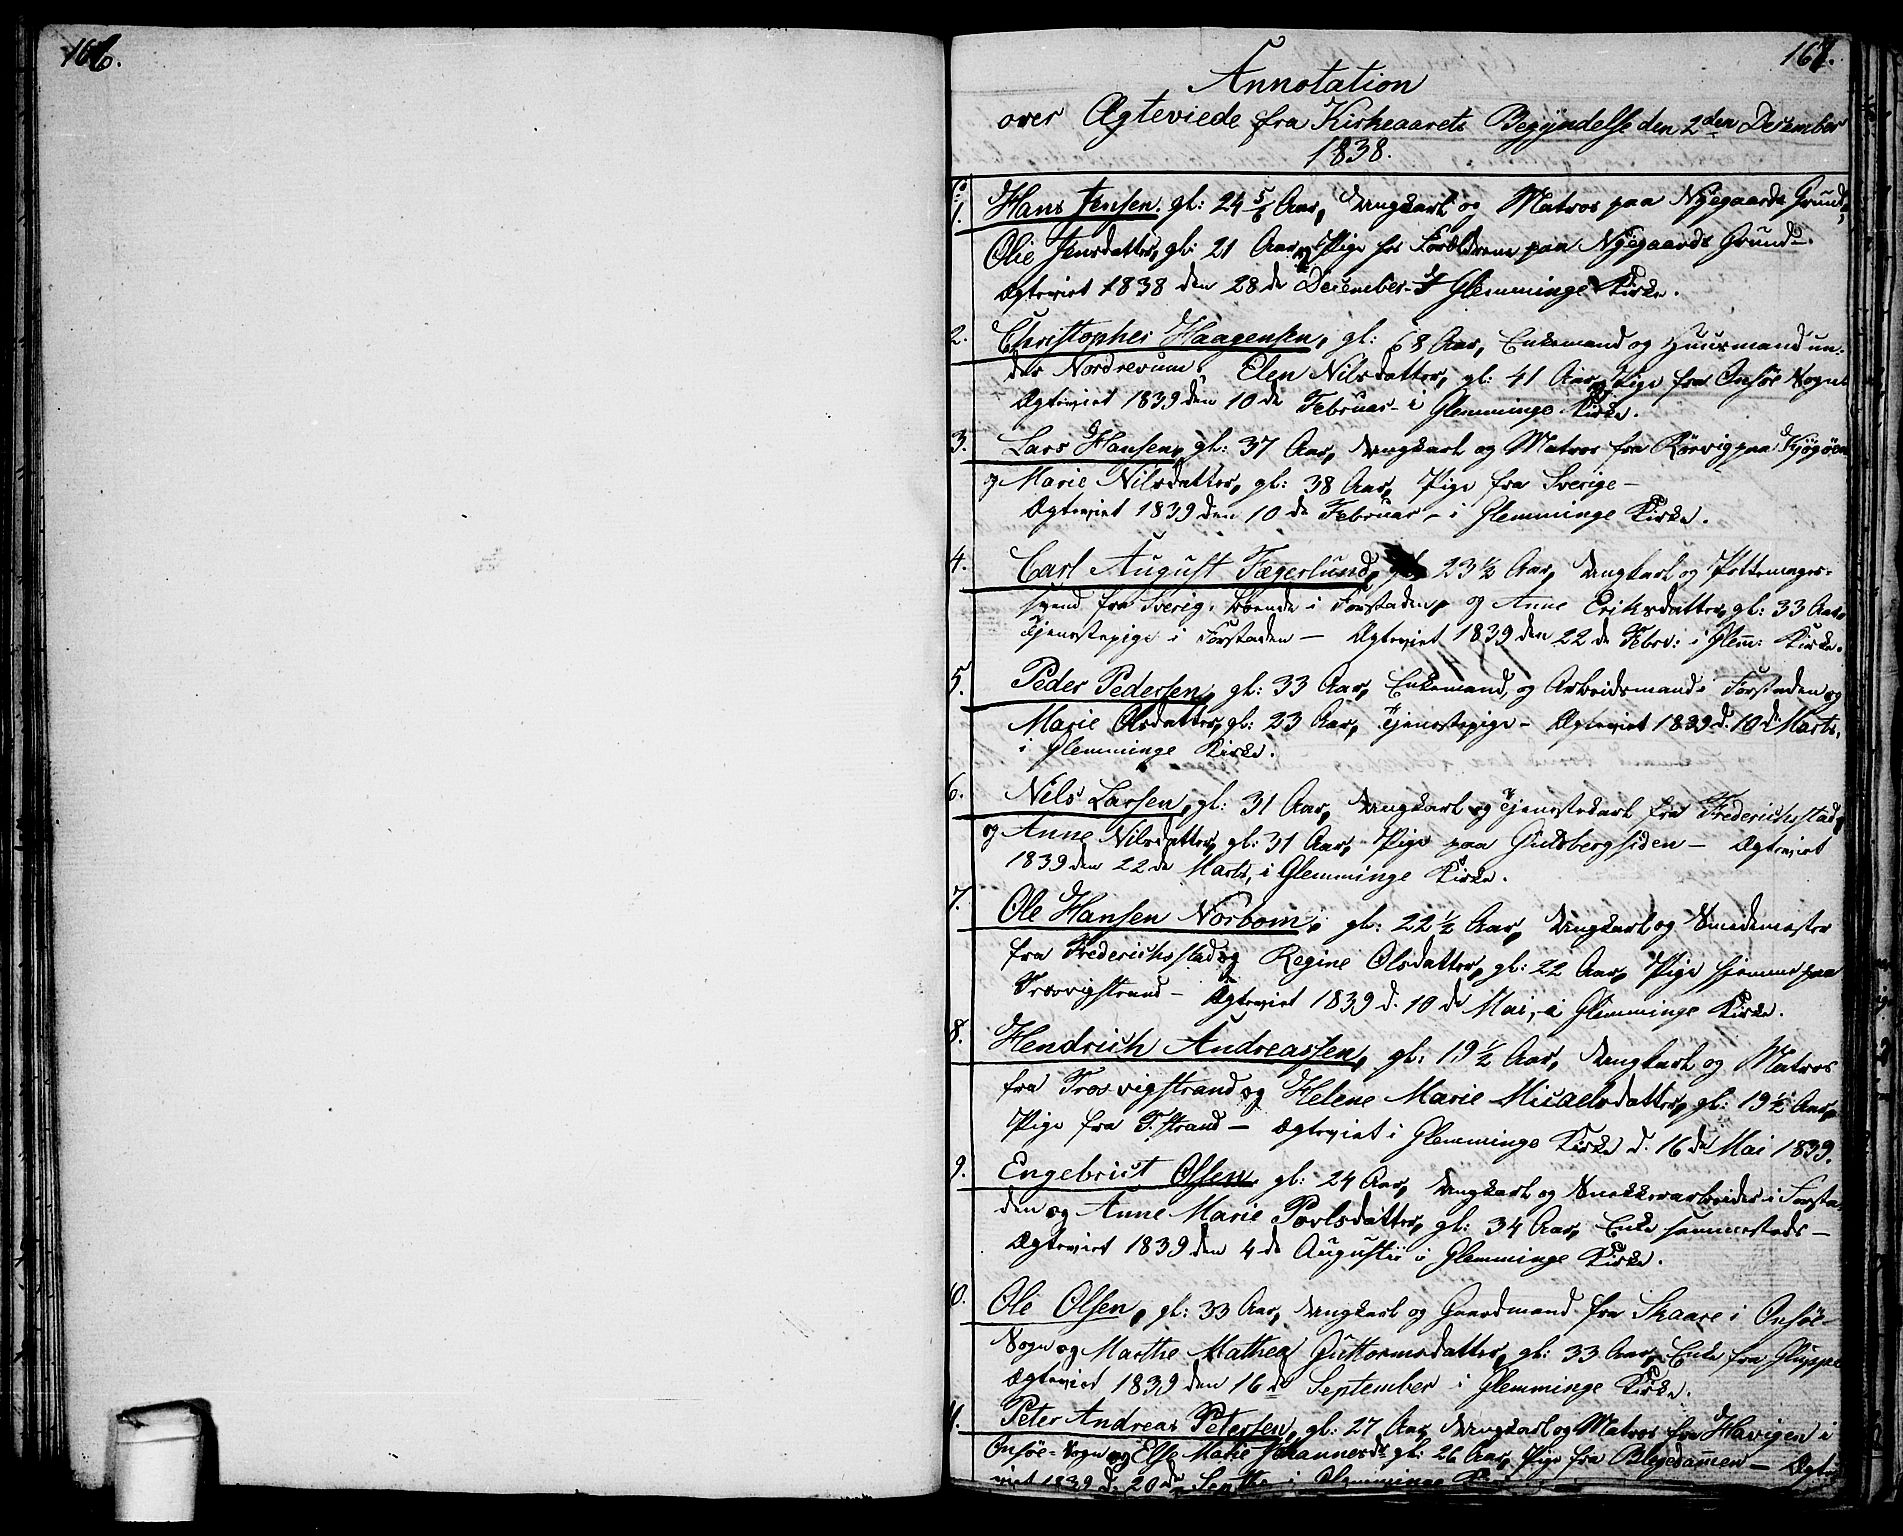 166.
167.
Annotation
over Ægteviede fra Kirkeaarets Begÿndelse den 2den December
1838.
1. Hans Jensen, gl: 24 5/6 Aar, Ungkarl og Matros paa Nÿegaards Grund,
Olie Jensdatter, gl: 21 Aar, Pige hos Forældrene paa Nÿegaards Grund.
Ægteviet 1838 den 28de December - I Glemminge Kirke.
2. Christopher Haagensen, gl: 68 Aar, Enkemand og Huusmand un-
der Nordrevum, Elen Nilsdatter, gl: 41 Aar, Pige fra Onsöe Sogn
Ægteviet 1839 den 10de Februar - i Glemminge Kirke.
3. Lars Hansen, gl: 37 Aar, Ungkarl og Matros fra Rörvig paa Kjøgöen
og Marie Nilsdatter, gl: 38 Aar, Pige fra Sverige -
Ægteviet 1839 den 10de Februar - i Glemminge Kirke.
4. Carl August Fægerlund, gl: 23 1/2 Aar, Ungkarl og Pottemager-
svend fra Sverig, boende i Forstaden, og Anne Eriksdatter, gl: 33 Aar,
Tjenestepige i Forstaden - Ægteviet 1839 den 22de Febr: i Glem: Kirke.
5. Peder Pedersen, gl: 33 Aar, Enkemand, og Arbeidsmand i Forstaden og
Marie Olsdatter, gl: 23 Aar, Tjenestepige - Ægteviet 1839 d. 10de Marts,
i Glemminge Kirke.
6. Nils Larsen, gl: 31 Aar, Ungkarl og Tjenestekarl fra Frederichsstad,
og Anne Nilsdatter, gl: 31 Aar, Pige paa Guldbergsiden - Ægteviet
1839 den 22de Marts, i Glemminge Kirke.
7. Ole Hansen Norbom, gl: 22 1/2 Aar, Ungkarl og Smedemester
fra Frederichsstad og Regine Olsdatter, gl: 22 Aar, Pige hjemme paa
Trosvigstrand - Ægteviet 1839 d. 10de Mai, i Glemminge Kirke.
8. Hendrich Andreassen, gl: 19 1/2 Aar, Ungkarl og Matros
fra Trosvigstrand og Helene Marie Micaelsdatter, gl: 19 1/2 Aar,
Pige fra T.strand - Ægteviet i Glemminge Kirke d. 16de Mai 1839.
9. Engebrict Olsen, gl: 24 Aar, Ungkarl og Snekkerarbeider i Forsta-
den og Anne Marie Povlsdatter, gl: 34 Aar, Enke sammesteds -
Ægteviet 1839 den 4de Augustii i Glemminge Kirke.
0. Ole Olsen, gl: 33 Aar, Ungkarl og Gaardmand fra Skaare i Onsöe-
Sogn og Marthe Mathea Guttormsdatter, gl: 33 Aar, Enke fra Gluppe
Ægteviet 1839 den 16de September i Glemminge Kirke.
1. Peter Andreas Petersen, gl: 27 Aar, Ungkarl og Matros fra Havigen i
Onsöe-Sogn og Else Marie Johannesd: gl: 26 Aar, Pige fra Blegedammen - Ægte-
viet 1839 d. 20de Septbr i Glemminge Kirke